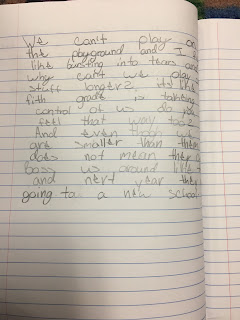 We can't play on
the playground and I
like bursting into tears and
why can't we play
stuff longer?. its like
fith grade is takeing
control of us do you
feel that way too?
And even though we
are smaller than them
does not mean they
boss us around like t
and next year they
going to a new school